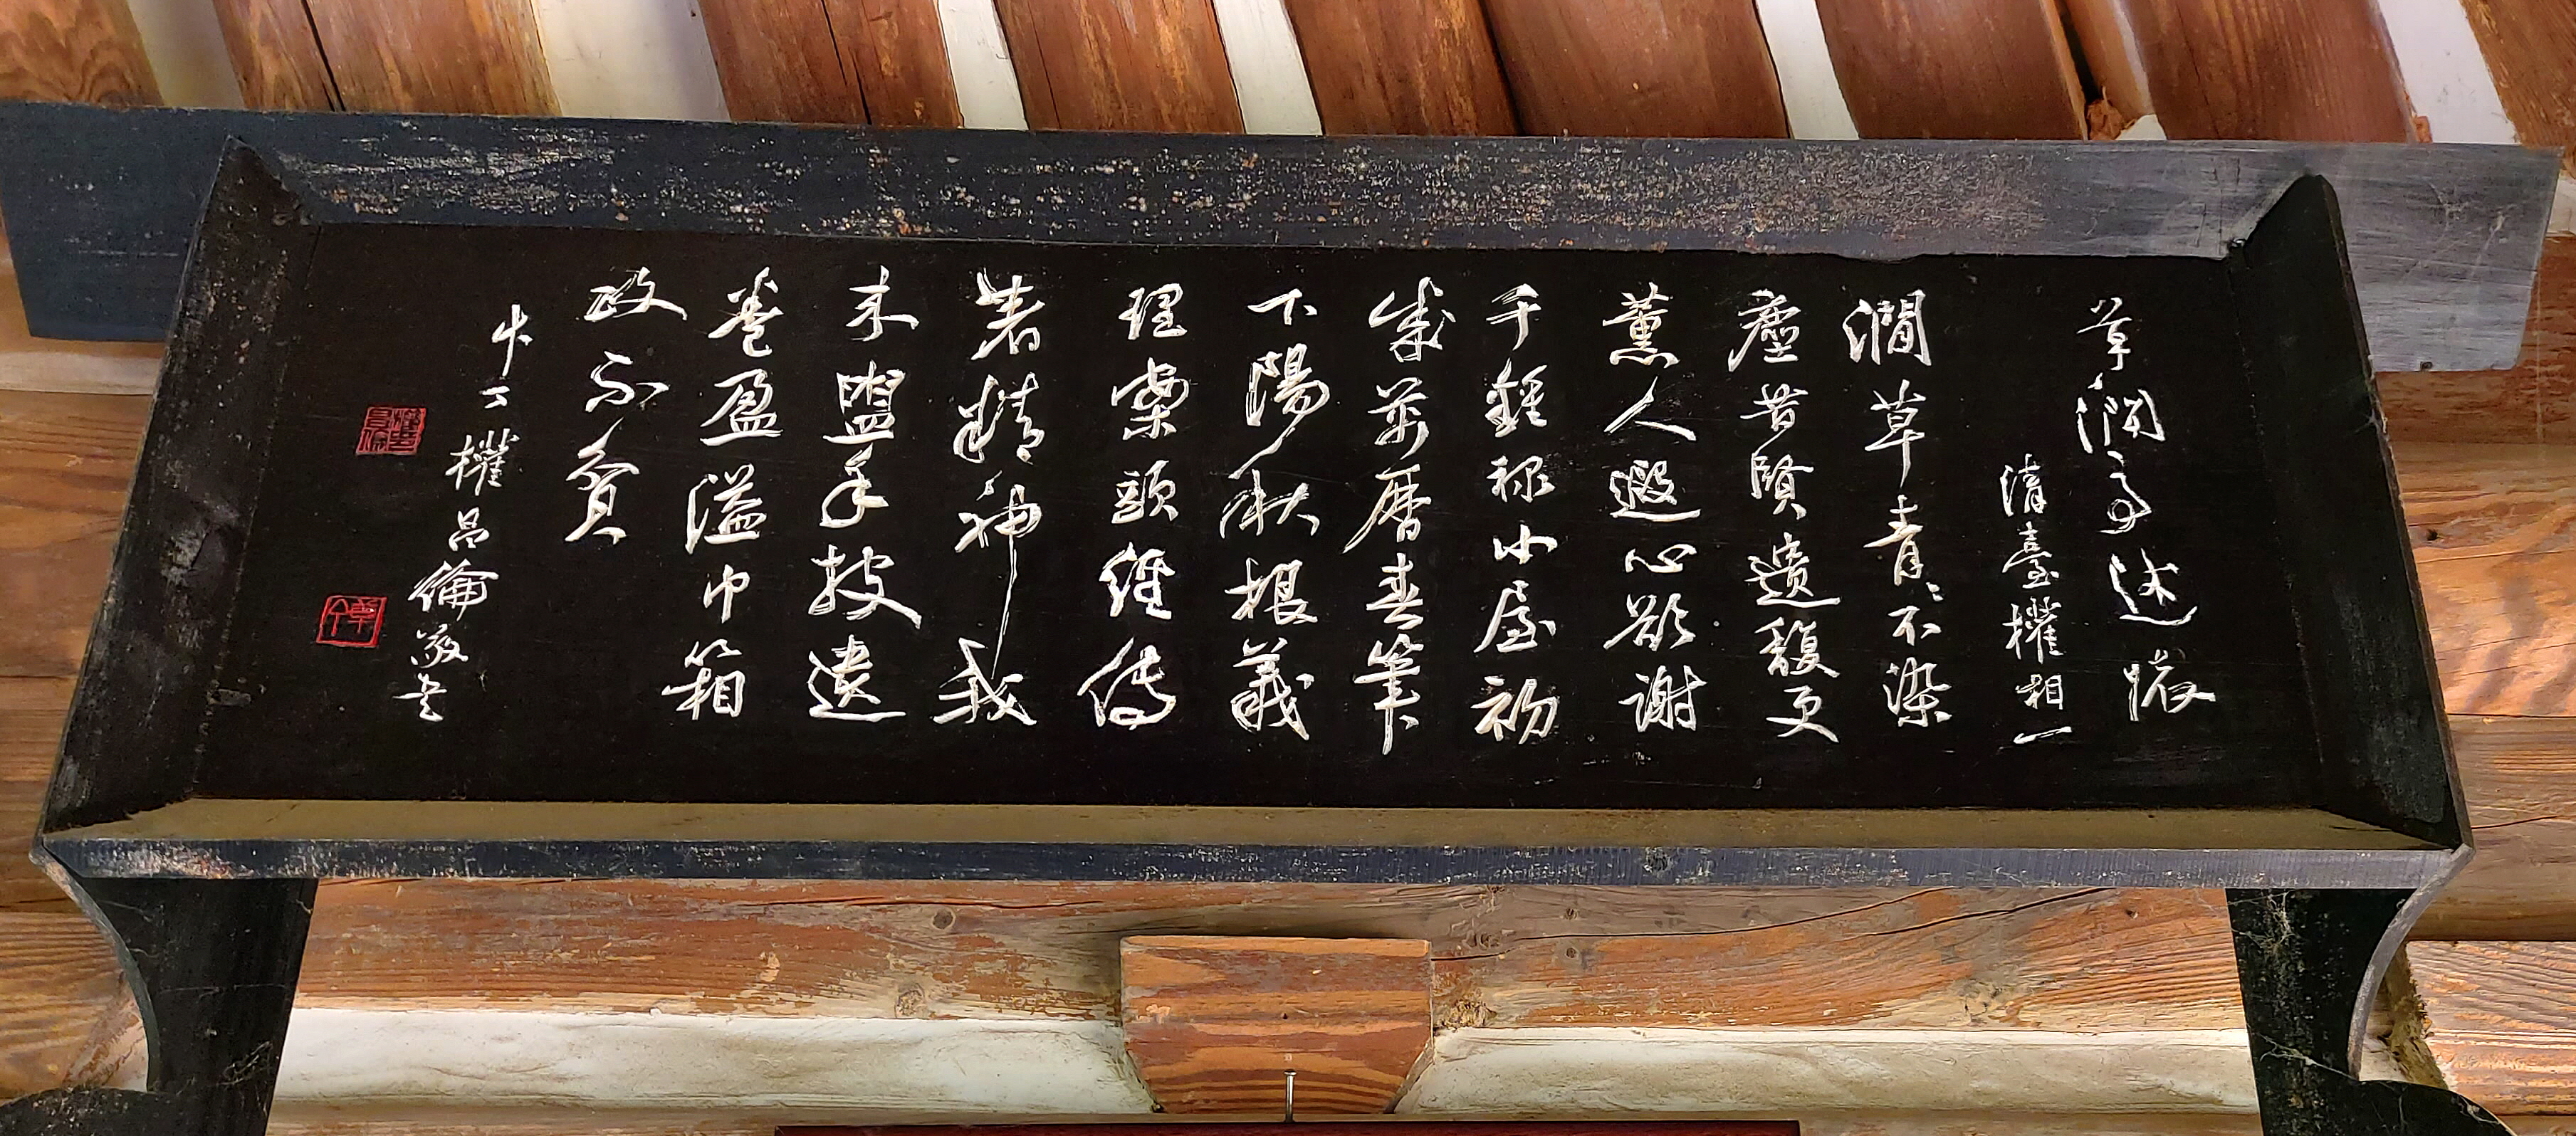 草澗亭述懷
清臺權相一
澗草青〻不染
塵昔賢遺馥更
薰人遐心欲謝
千鍾祿小屋初
成萬曆春筆
下陽秋根義
理案頭經傳
著精神我
來盥手披遺
卷盈溢巾箱
政不貧
權昌倫敬書